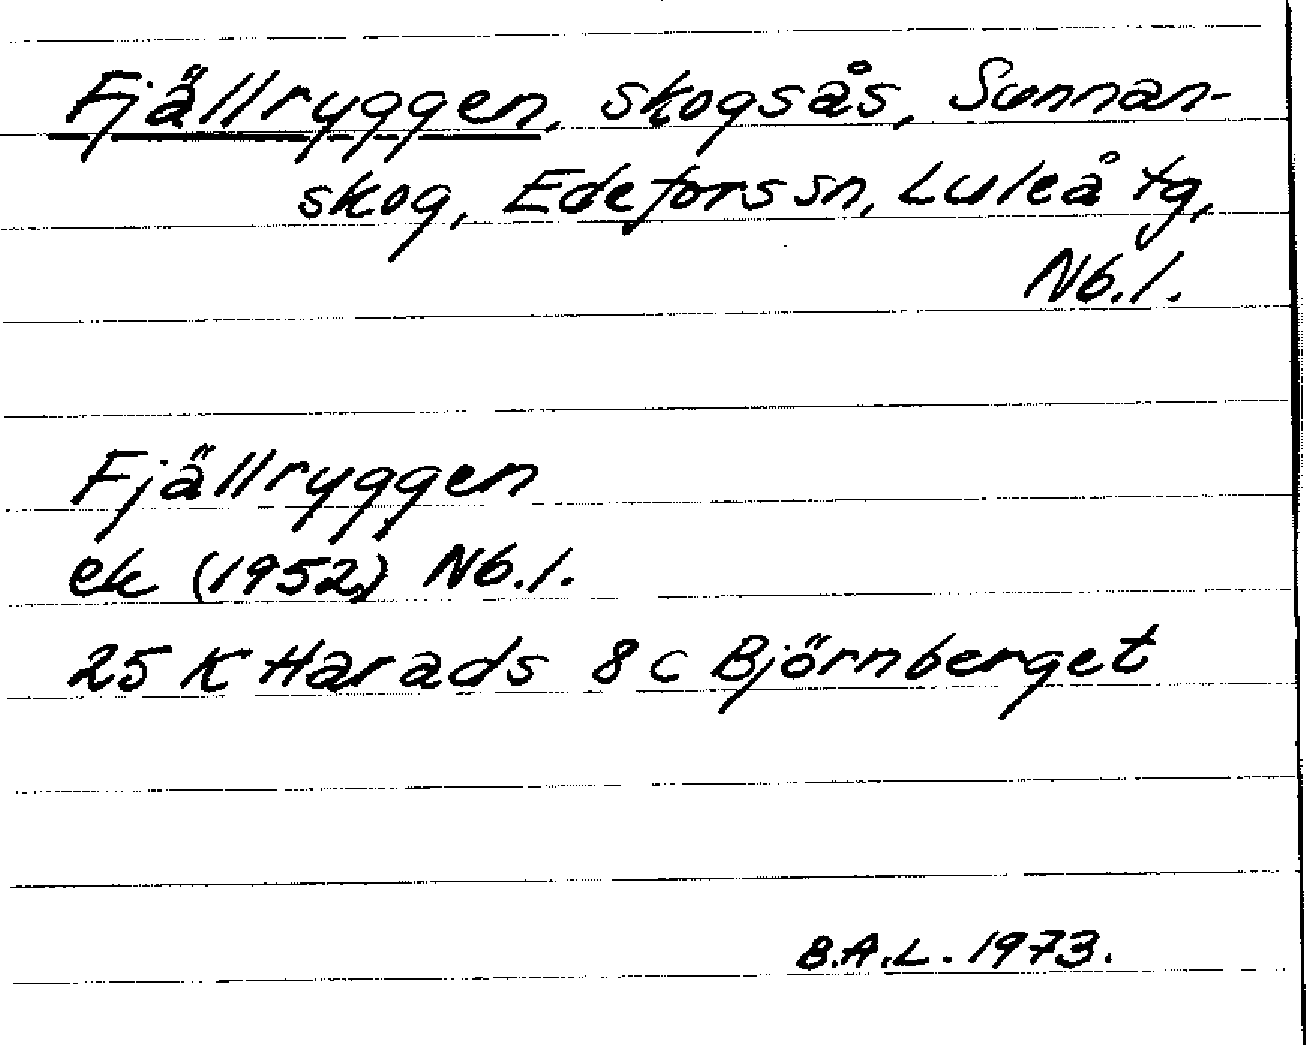 Fjällryggen, skogsås, Sunnan-
skog, Edefors sn, Luleå tg,
Nb.l.
Fjällryggen
ek (1952) Nb.l.
25 K Harads 8 c Björnberget
B.A.L. 1973.